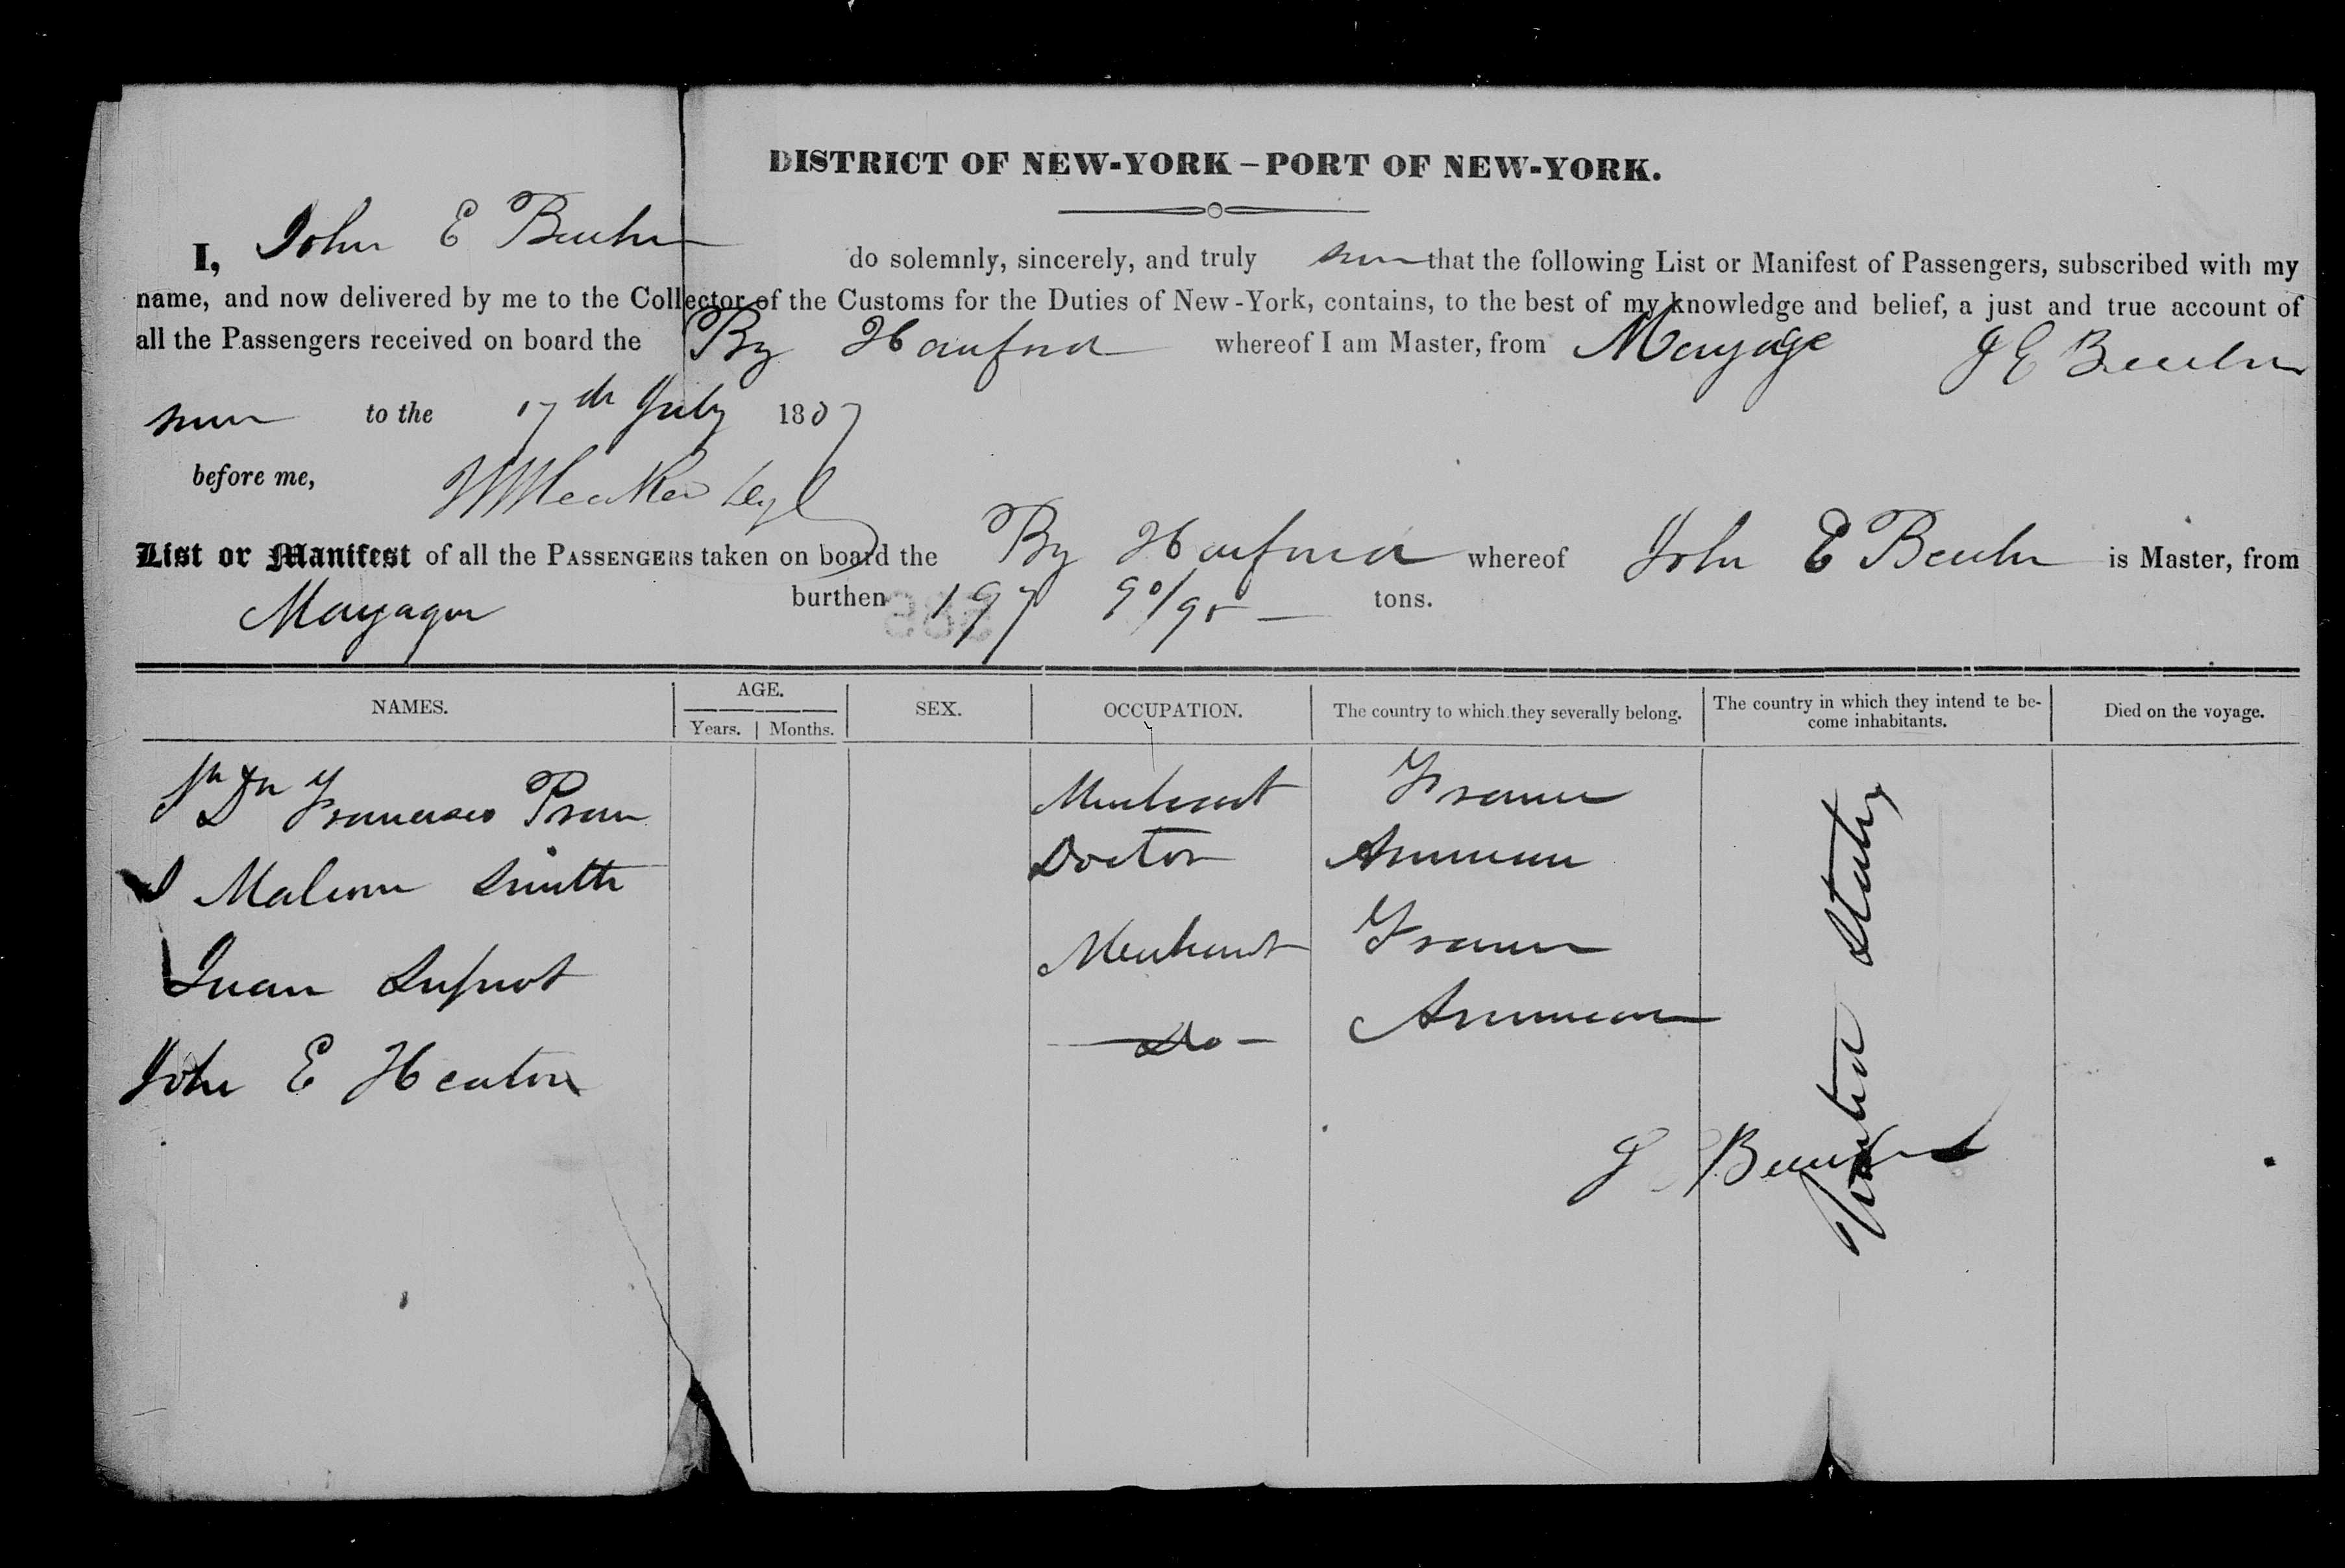 DISTRICT OF NEW-YORK – PORT OF NEW-YORK.
I, John E do solemnly, sincerely, and truly that the following List or Manifest of Passengers, subscribed with my
name, and now delivered by me to the Collector of the Customs for the Duties of New-York, contains, to the best of my knowledge and belief, a just and true account of
all the Passengers received on board the whereof I am Master, from Mayage J E
to the 17th July 18
before me,
List or Manifest of all the PASSENGERS taken on board the whereof John E is Master, from
burthen 197 90/95 tons.
NAMES. AGE. SEX. OCCUPATION. The country to which they severally belong. The country in which they intend te be-
come inhabitants. Died on the voyage.
Years. Months.
Francisco Merchant France
Smith Doctor American
Juan Merchant France
John E Heaton Do American
United States
J